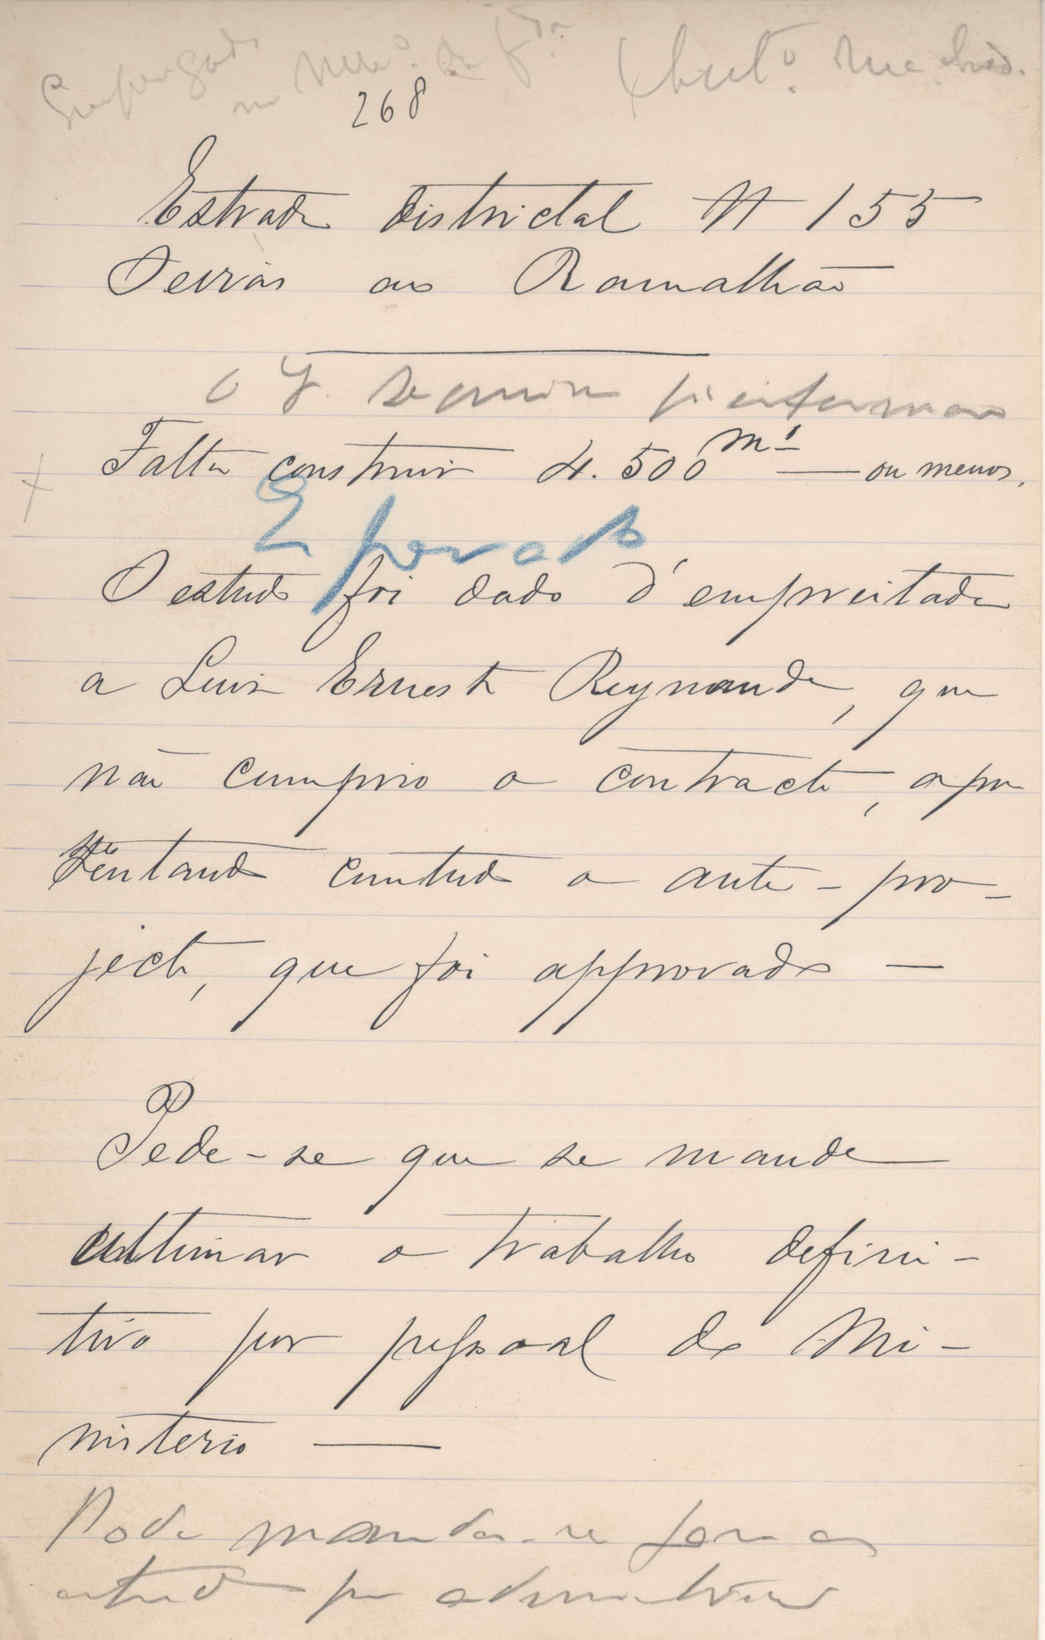 Empregado no Min.º da Fda.
268
Estrada districtal Nº 155
Oeiras ao Ramalhão
Falta construir 4.500 m.s — ou menos.
O estudo foi dado d'empreitada
a Luis Ernesto Reynaude, que
não cumprio o contracto, apre
sentando comtudo o ante-pro-
jecto, que foi approvado —
Pede-se que se mande
ultimar o trabalho defini-
tivo por pessoal do Mi-
nisterio —
Pode mandar-se fazer o
estudo por administração